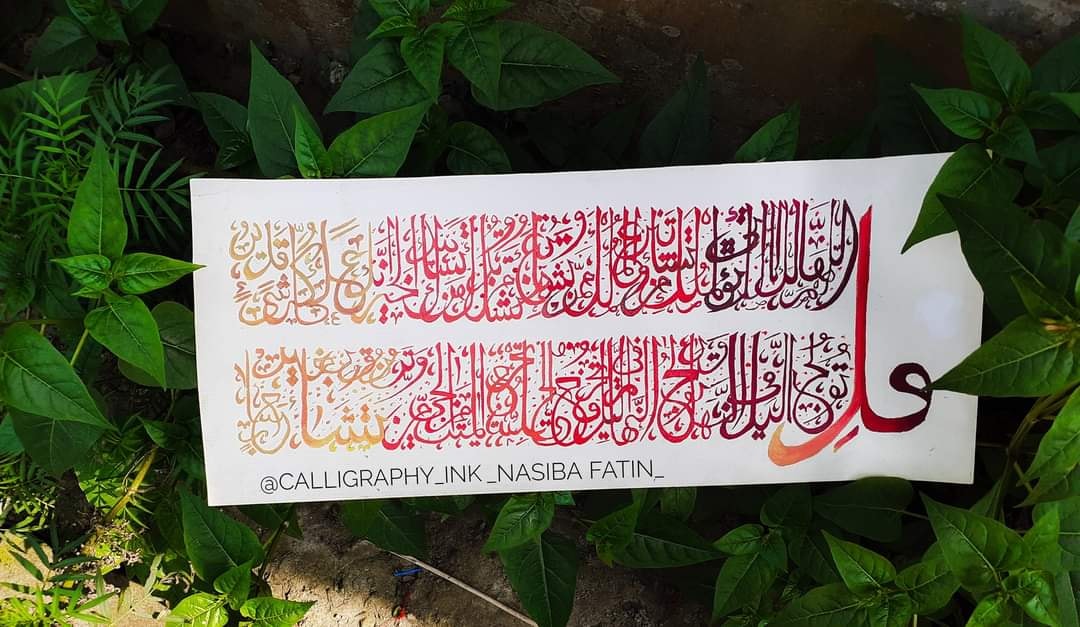 قُلِ اللَّهُمَّ مَالِكَ الْمُلْكِ تُؤْتِي الْمُلْكَ مَن تَشَاءُ وَتَنزِعُ الْمُلْكَ مِمَّن تَشَاءُ وَتُعِزُّ مَن تَشَاءُ وَتُذِلُّ مَن تَشَاءُ بِيَدِكَ الْخَيْرُ إِنَّكَ عَلَىٰ كُلِّ شَيْءٍ قَدِيرٌ
تُولِجُ اللَّيْلَ فِي النَّهَارِ وَتُولِجُ النَّهَارَ فِي اللَّيْلِ وَتُخْرِجُ الْحَيَّ مِنَ الْمَيِّتِ وَتُخْرِجُ الْمَيِّتَ مِنَ الْحَيِّ وَتَرْزُقُ مَن تَشَاءُ بِغَيْرِ حِسَابٍ
@CALLIGRAPHY_INK_NASIBA FATIN_